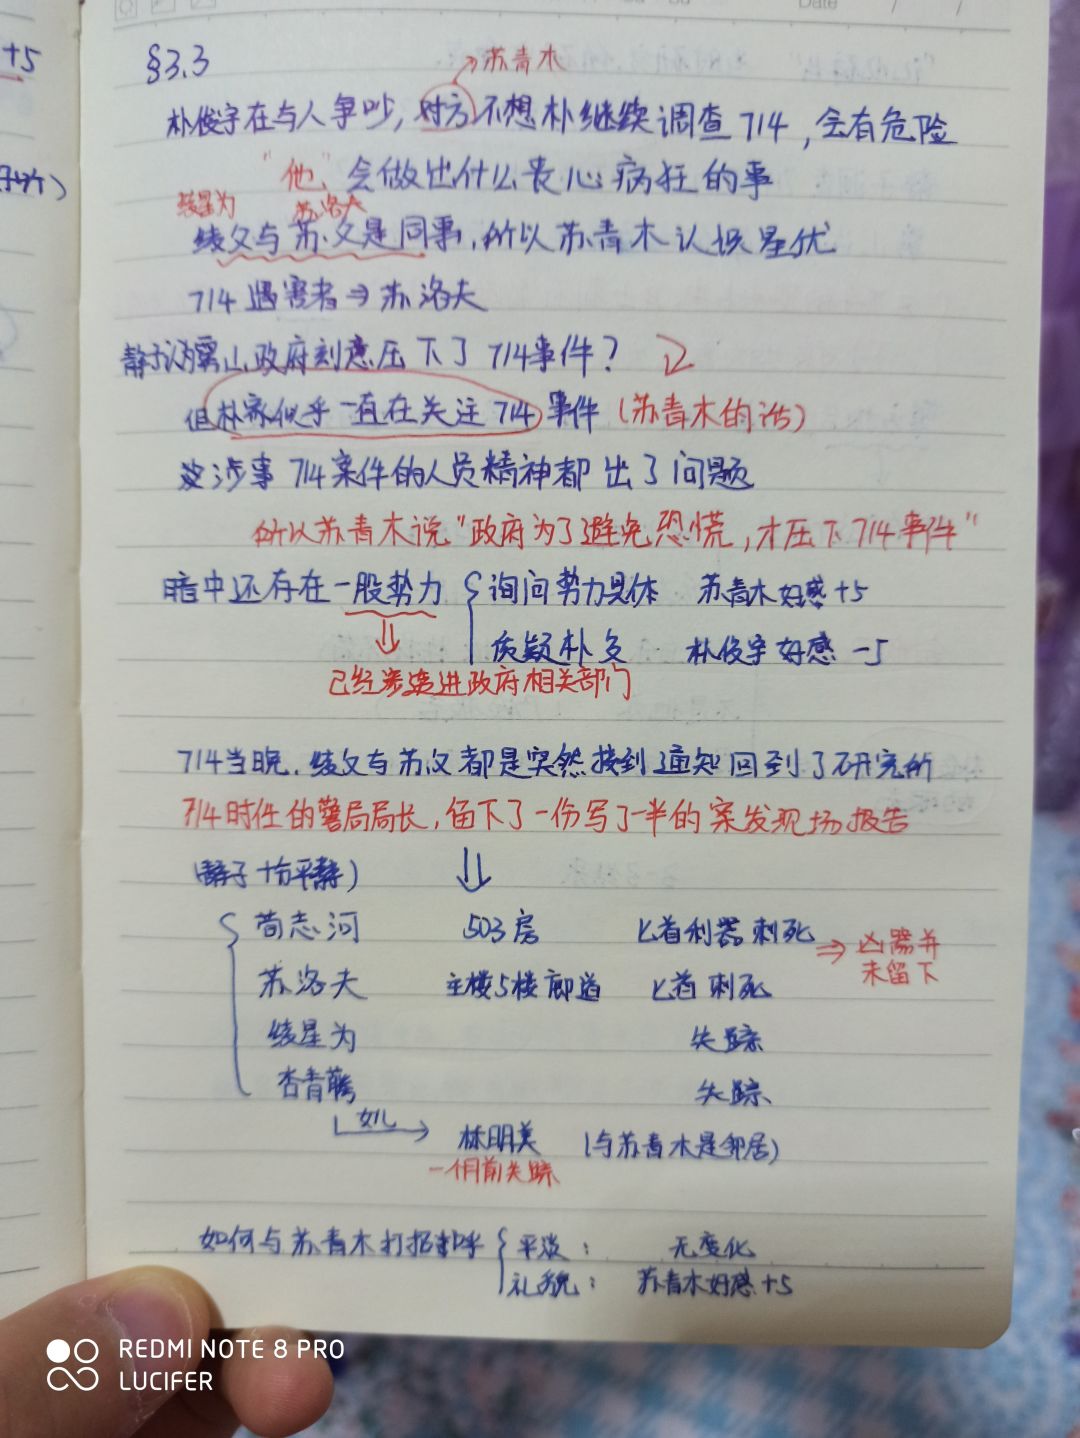 Date / /
+5
§3.3
苏青木
朴俊宇在与人争吵，对方不想朴继续调查714，会有危险
"他"会做出什么丧心病狂的事
绫星为 苏洛夫
绫父与苏父是同事，所以苏青木认识星优
714遇害者⇒苏洛夫
静子认为雾山政府刻意压下了714事件？
但朴家似乎一直在关注714事件（苏青木的话）
涉事714案件的人员精神都出了问题
所以苏青木说"政府为了避免恐慌，才压下714事件"
暗中还存在一股势力 询问势力具体 苏青木好感+5
质疑朴父 朴俊宇好感-5
已经渗透进政府相关部门
714当晚，绫父与苏父都是突然接到通知回到了研究所
714时任的警局局长，留下了一份写了一半的案发现场报告
（静子十分平静）
苟志河 503房 匕首利器刺死 ⇒ 凶器并
未留下
苏洛夫 主楼5楼廊道 匕首刺死
绫星为 失踪
杏青藤 失踪
女儿→ 林明美 （与苏青木是邻居）
一个月前失踪
如何与苏青木打招呼 平淡： 无变化
礼貌： 苏青木好感+5
REDMI NOTE 8 PRO
LUCIFER